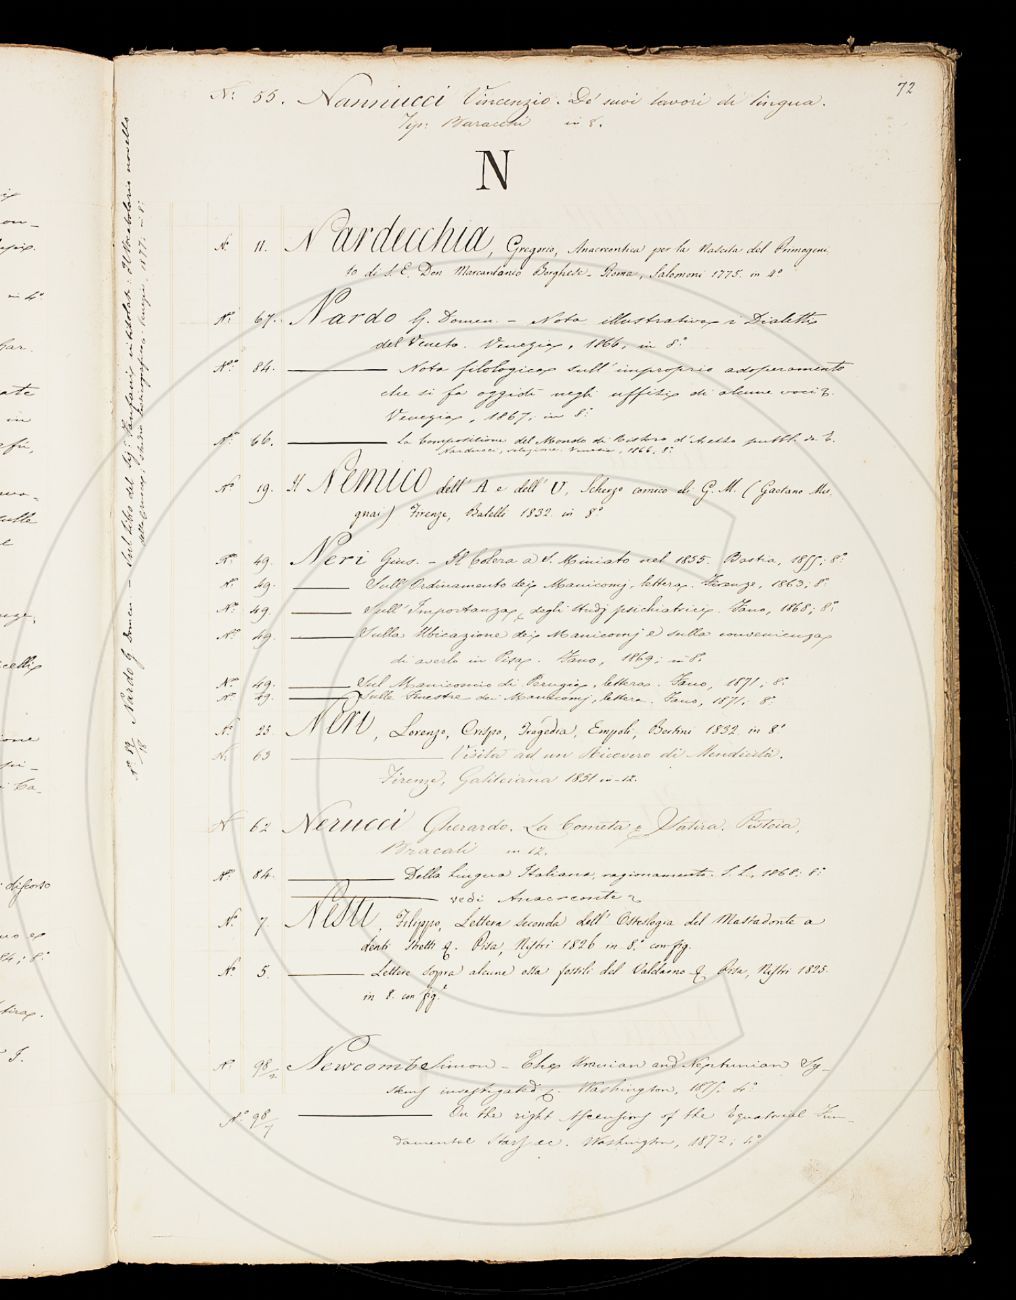 72
N.° 55. Nannucci Vincenzio. De' suoi lavori di lingua.
Tip: Baracchi in 8.
N
N.° 11. Nardecchia, Gregorio, Anacreontica per la Nascita del Primogeni
to di S. E. Don Marcantonio Borghese - Roma, Salomoni 1775. in 4°
N.° 67. Nardo G. Domen. - Nota illustrativa i Dialetti
del Veneto. Venezia, 1866, in 8°.
N.° 84. Nota filologica sull' improprio adoperamento
che si fa oggidì negli uffizi di alcune voci
Venezia, 1867, in 8°
N.° 66. La Composizione del Mondo di Ristoro d'Arezzo pubb. da E.
Narducci, relazione. Venezia, 1866. 8°
N.° 19. Il Nemico dell' A e dell' U, Scherzo comico di G. M. (Gaetano Mu
gnai) Firenze, Batelli 1832 in 8°
N.° 49. Neri Gius. - Il Colera a S. Miniato nel 1855. Bastia, 1855; 8°
N.° 49. Sull' Ordinamento dei Manicomj, lettera. Firenze, 1863; 8°
N.° 49 Sull' Importanza degli Studj psichiatrici. Fano, 1868; 8°
N.° 49. Sulla Ubicazione dei Manicomj e sulla convenienza
di averlo in Pisa. Fano, 1869; in 8°
N.° 49. Sul Manicomio di Perugia, lettera. Fano, 1871; 8°
N.° 49. Sulle Finestre dei Manicomj, lettera. Fano, 1871; 8°
N.° 23 Neri, Lorenzo, Crispo, Tragedia, Empoli, Bertini 1832 in 8°
N.° 63 Visita ad un Ricovero di Mendicità.
Firenze, Galileiana 1851 in-12.
N.° 62 Nerucci Gherardo. La Cometa Satira. Pistoia,
Bracali in 12.
N.° 84. Della lingua Italiana, ragionamento. S. L., 1868; 8°
vedi Anacreonte
N.° 7. Nesti, Filippo, Lettera Seconda dell' Osteologia del Mastodonte a
denti Stretti &. Pisa, Nistri 1826 in 8.° con fig.
N.° 5. Lettere sopra alcune ossa fossili del Valdarno & Pisa, Nistri 1825.
in 8. con fig.
N.° 98/2 Newcomb Simon - The Uranian and Neptunian Sy-
stems investigated &. Washington, 1875; 4°
N.° 98/7 On the right Ascensions of the Equatorial Fun-
damental Stars ec. Washington, 1872; 4°
N.° 82/18 Nardo G. Domen. - Sul libro del Sig. Fanfani intitolato: Il Vocabolario novello
della Crusca; Studio 1877 - 8°